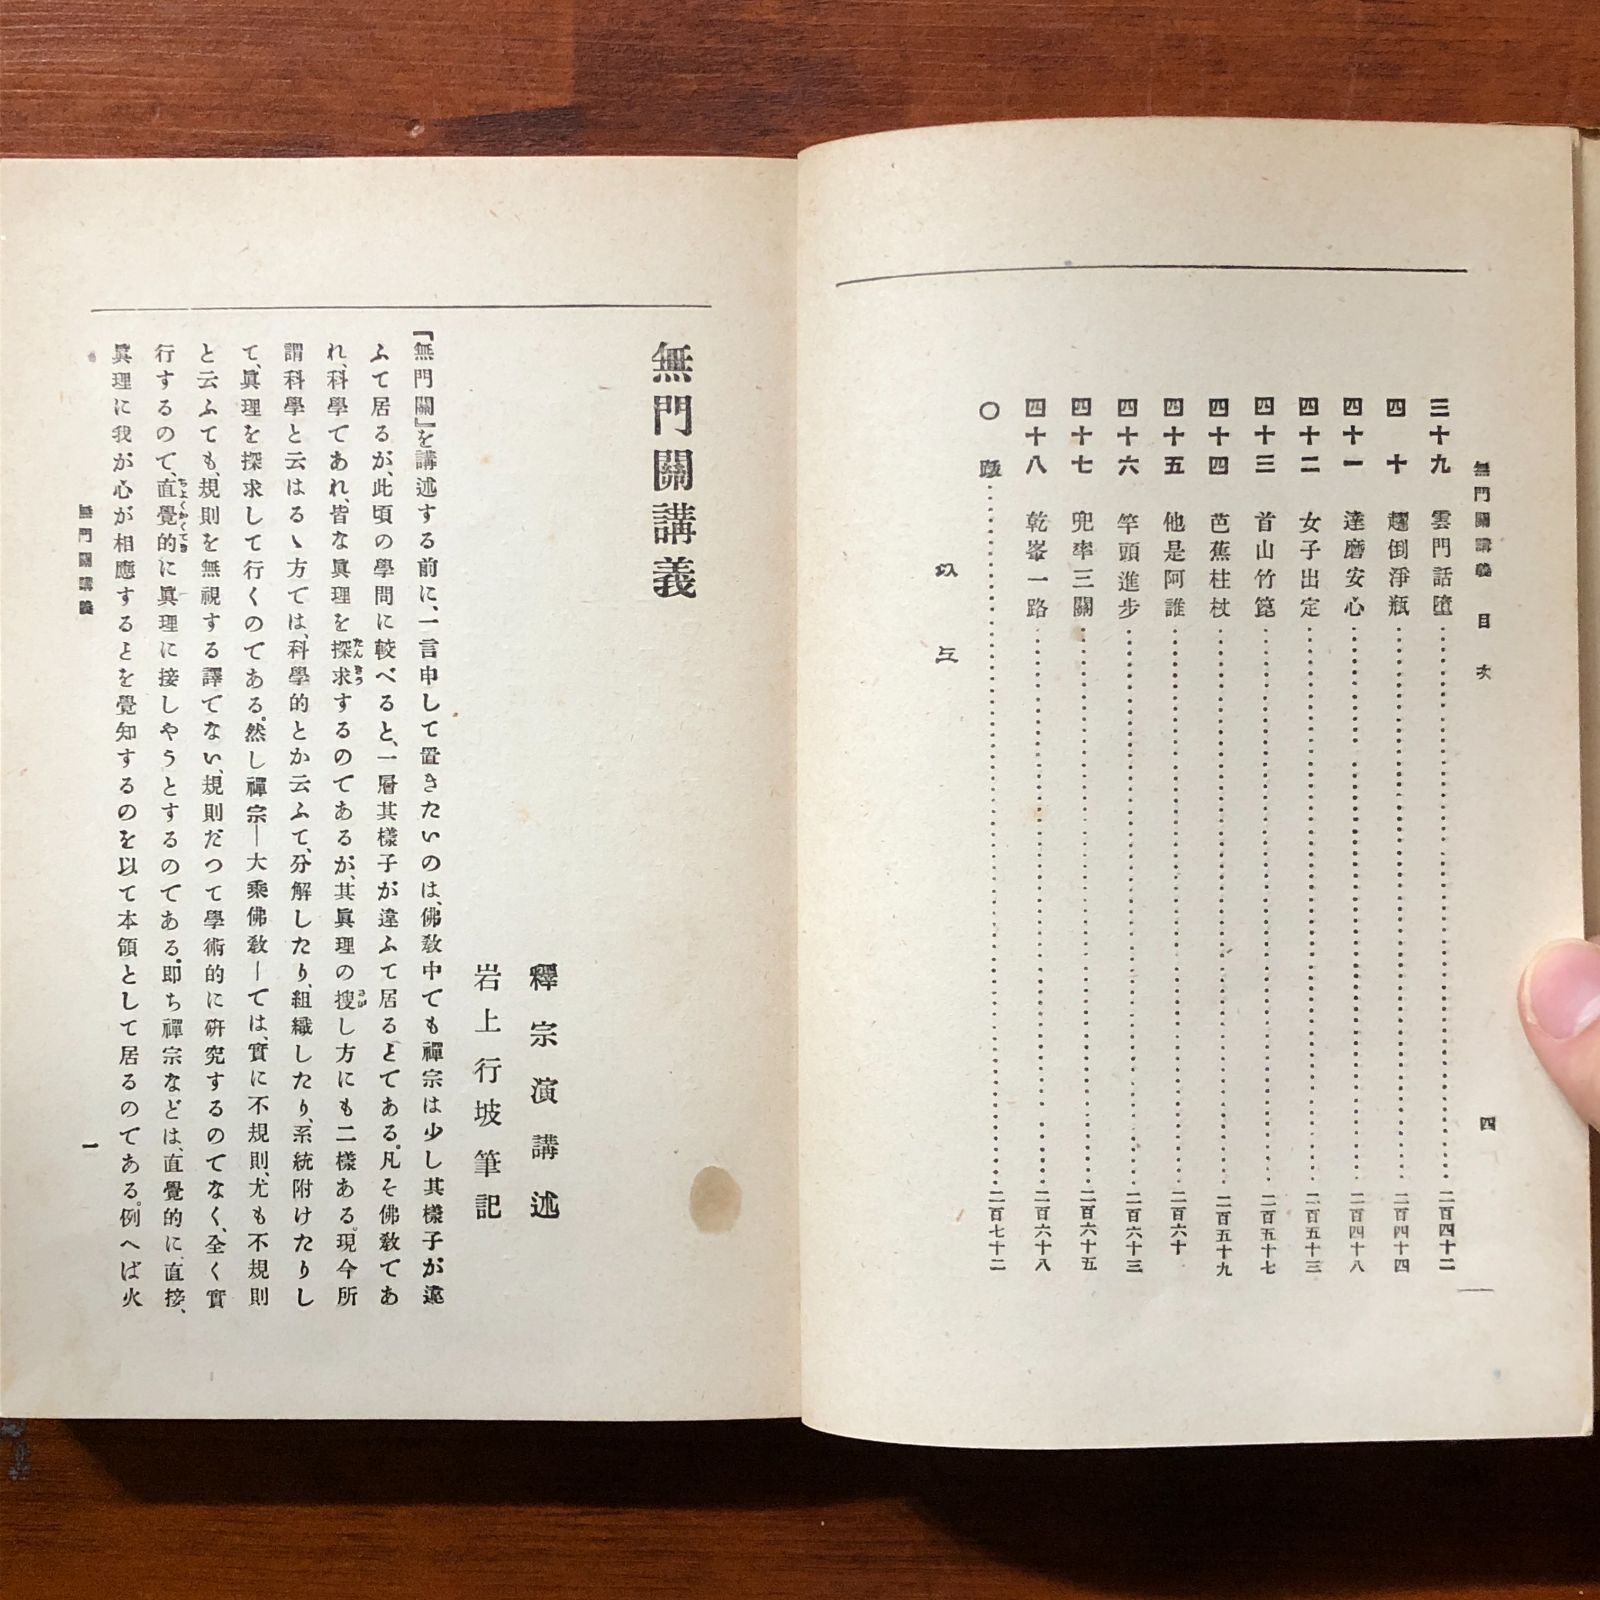 無門關講義 目次
四
三十九 雲門話墮 二百四十二
四十 趯倒淨瓶 二百四十四
四十一 達磨安心 二百四十八
四十二 女子出定 二百五十三
四十三 首山竹篦 二百五十七
四十四 芭蕉柱杖 二百五十九
四十五 他是阿誰 二百六十
四十六 竿頭進步 二百六十三
四十七 兜率三關 二百六十五
四十八 乾峯一路 二百六十八
〇 跋 二百七十二
以上
無門關講義
釋宗演講述
岩上行坡筆記
『無門關』を講述する前に、一言申して置きたいのは、佛敎中ても禪宗は少し其樣子が違
ふて居るが、此頃の學問に較べると、一層其樣子が違ふて居るとてある。凡そ佛敎てあ
れ、科學てあれ、皆な眞理を探求するのてあるが、其眞理の搜し方にも二樣ある。現今所
たんきう
さが
謂科學と云はるヽ方ては、科學的とか云ふて、分解したり、組織したり、系統附けたりし
て、眞理を探求して行くのてある。然し禪宗―大乘佛敎―ては、實に不規則、尤も不規則
と云ふても、規則を無視する譯てない、規則だつて學術的に硏究するのてなく、全く實
行するのて、直覺的に眞理に接しやうとするのてある。即ち禪宗などは、直覺的に、直接、
ちよくかくてき
眞理に我が心が相應するとを覺知するのを以て本領として居るのてある。例へば火
無門關講義
一